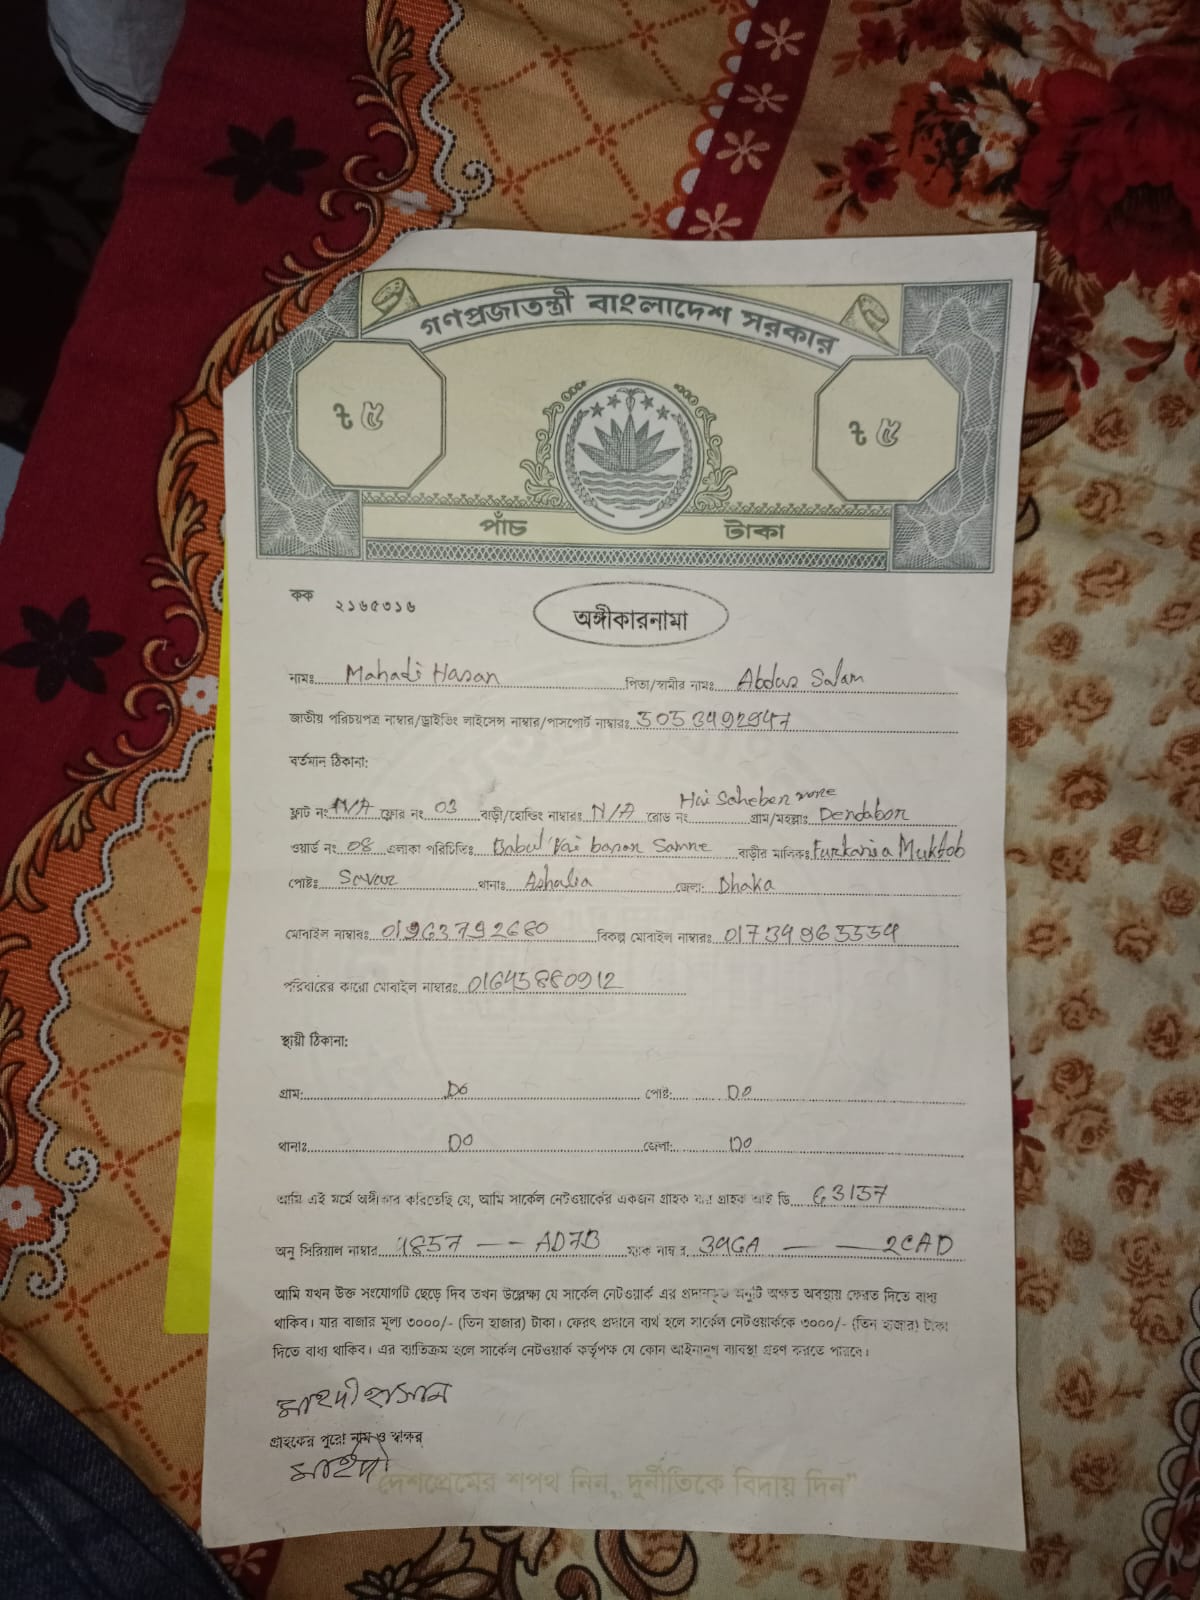 গণপ্রজাতন্ত্রী বাংলাদেশ সরকার
৳ ৫ ৳ ৫
পাঁচ টাকা
কক ২১৬৫৩১৬
অঙ্গীকারনামা
নামঃ Mahadi Hasan পিতা/স্বামীর নামঃ Abdus Salam
জাতীয় পরিচয়পত্র নাম্বার/ড্রাইভিং লাইসেন্স নাম্বার/পাসপোর্ট নাম্বারঃ
বর্তমান ঠিকানা:
ফ্লাট নং N/A ফ্লোর নং 03 বাড়ী/হোল্ডিং নাম্বারঃ N/A রোড নং Hai Saheber গ্রাম/মহল্লাঃ Dendabor
ওয়ার্ড নং 08 এলাকা পরিচিতিঃ Babul Vai basar Samne বাড়ীর মালিকঃ Furkania Muktob
পোষ্টঃ Savar থানাঃ Ashulia জেলা: Dhaka
মোবাইল নাম্বারঃ 01963792680 বিকল্প মোবাইল নাম্বারঃ
পরিবারের কারো মোবাইল নাম্বারঃ 01645880912
স্থায়ী ঠিকানা:
গ্রাম: Do পোষ্ট: Do
থানাঃ Do জেলা: Do
আমি এই মর্মে অঙ্গীকার করিতেছি যে, আমি সার্কেল নেটওয়ার্কের একজন গ্রাহক যার গ্রাহক আই ডি 63157
অনু সিরিয়াল নাম্বার 1857 -- AD7B ম্যাক নাম্বার 396A — — 2CAD
আমি যখন উক্ত সংযোগটি ছেড়ে দিব তখন উল্লেক্ষ্য যে সার্কেল নেটওয়ার্ক এর প্রদানকৃত অনুটি অক্ষত অবস্থায় ফেরত দিতে বাধ্য
থাকিব। যার বাজার মূল্য ৩০০০/- (তিন হাজার) টাকা। ফেরৎ প্রদানে ব্যর্থ হলে সার্কেল নেটওয়ার্ককে ৩০০০/- (তিন হাজার) টাকা
দিতে বাধ্য থাকিব। এর ব্যতিক্রম হলে সার্কেল নেটওয়ার্ক কর্তৃপক্ষ যে কোন আইনানুগ ব্যাবস্থা গ্রহণ করতে পারবে।
মাহদী হাসান
গ্রাহকের পুরো নাম ও স্বাক্ষর
মাহদী
দেশপ্রেমের শপথ নিন, দুর্নীতিকে বিদায় দিন"